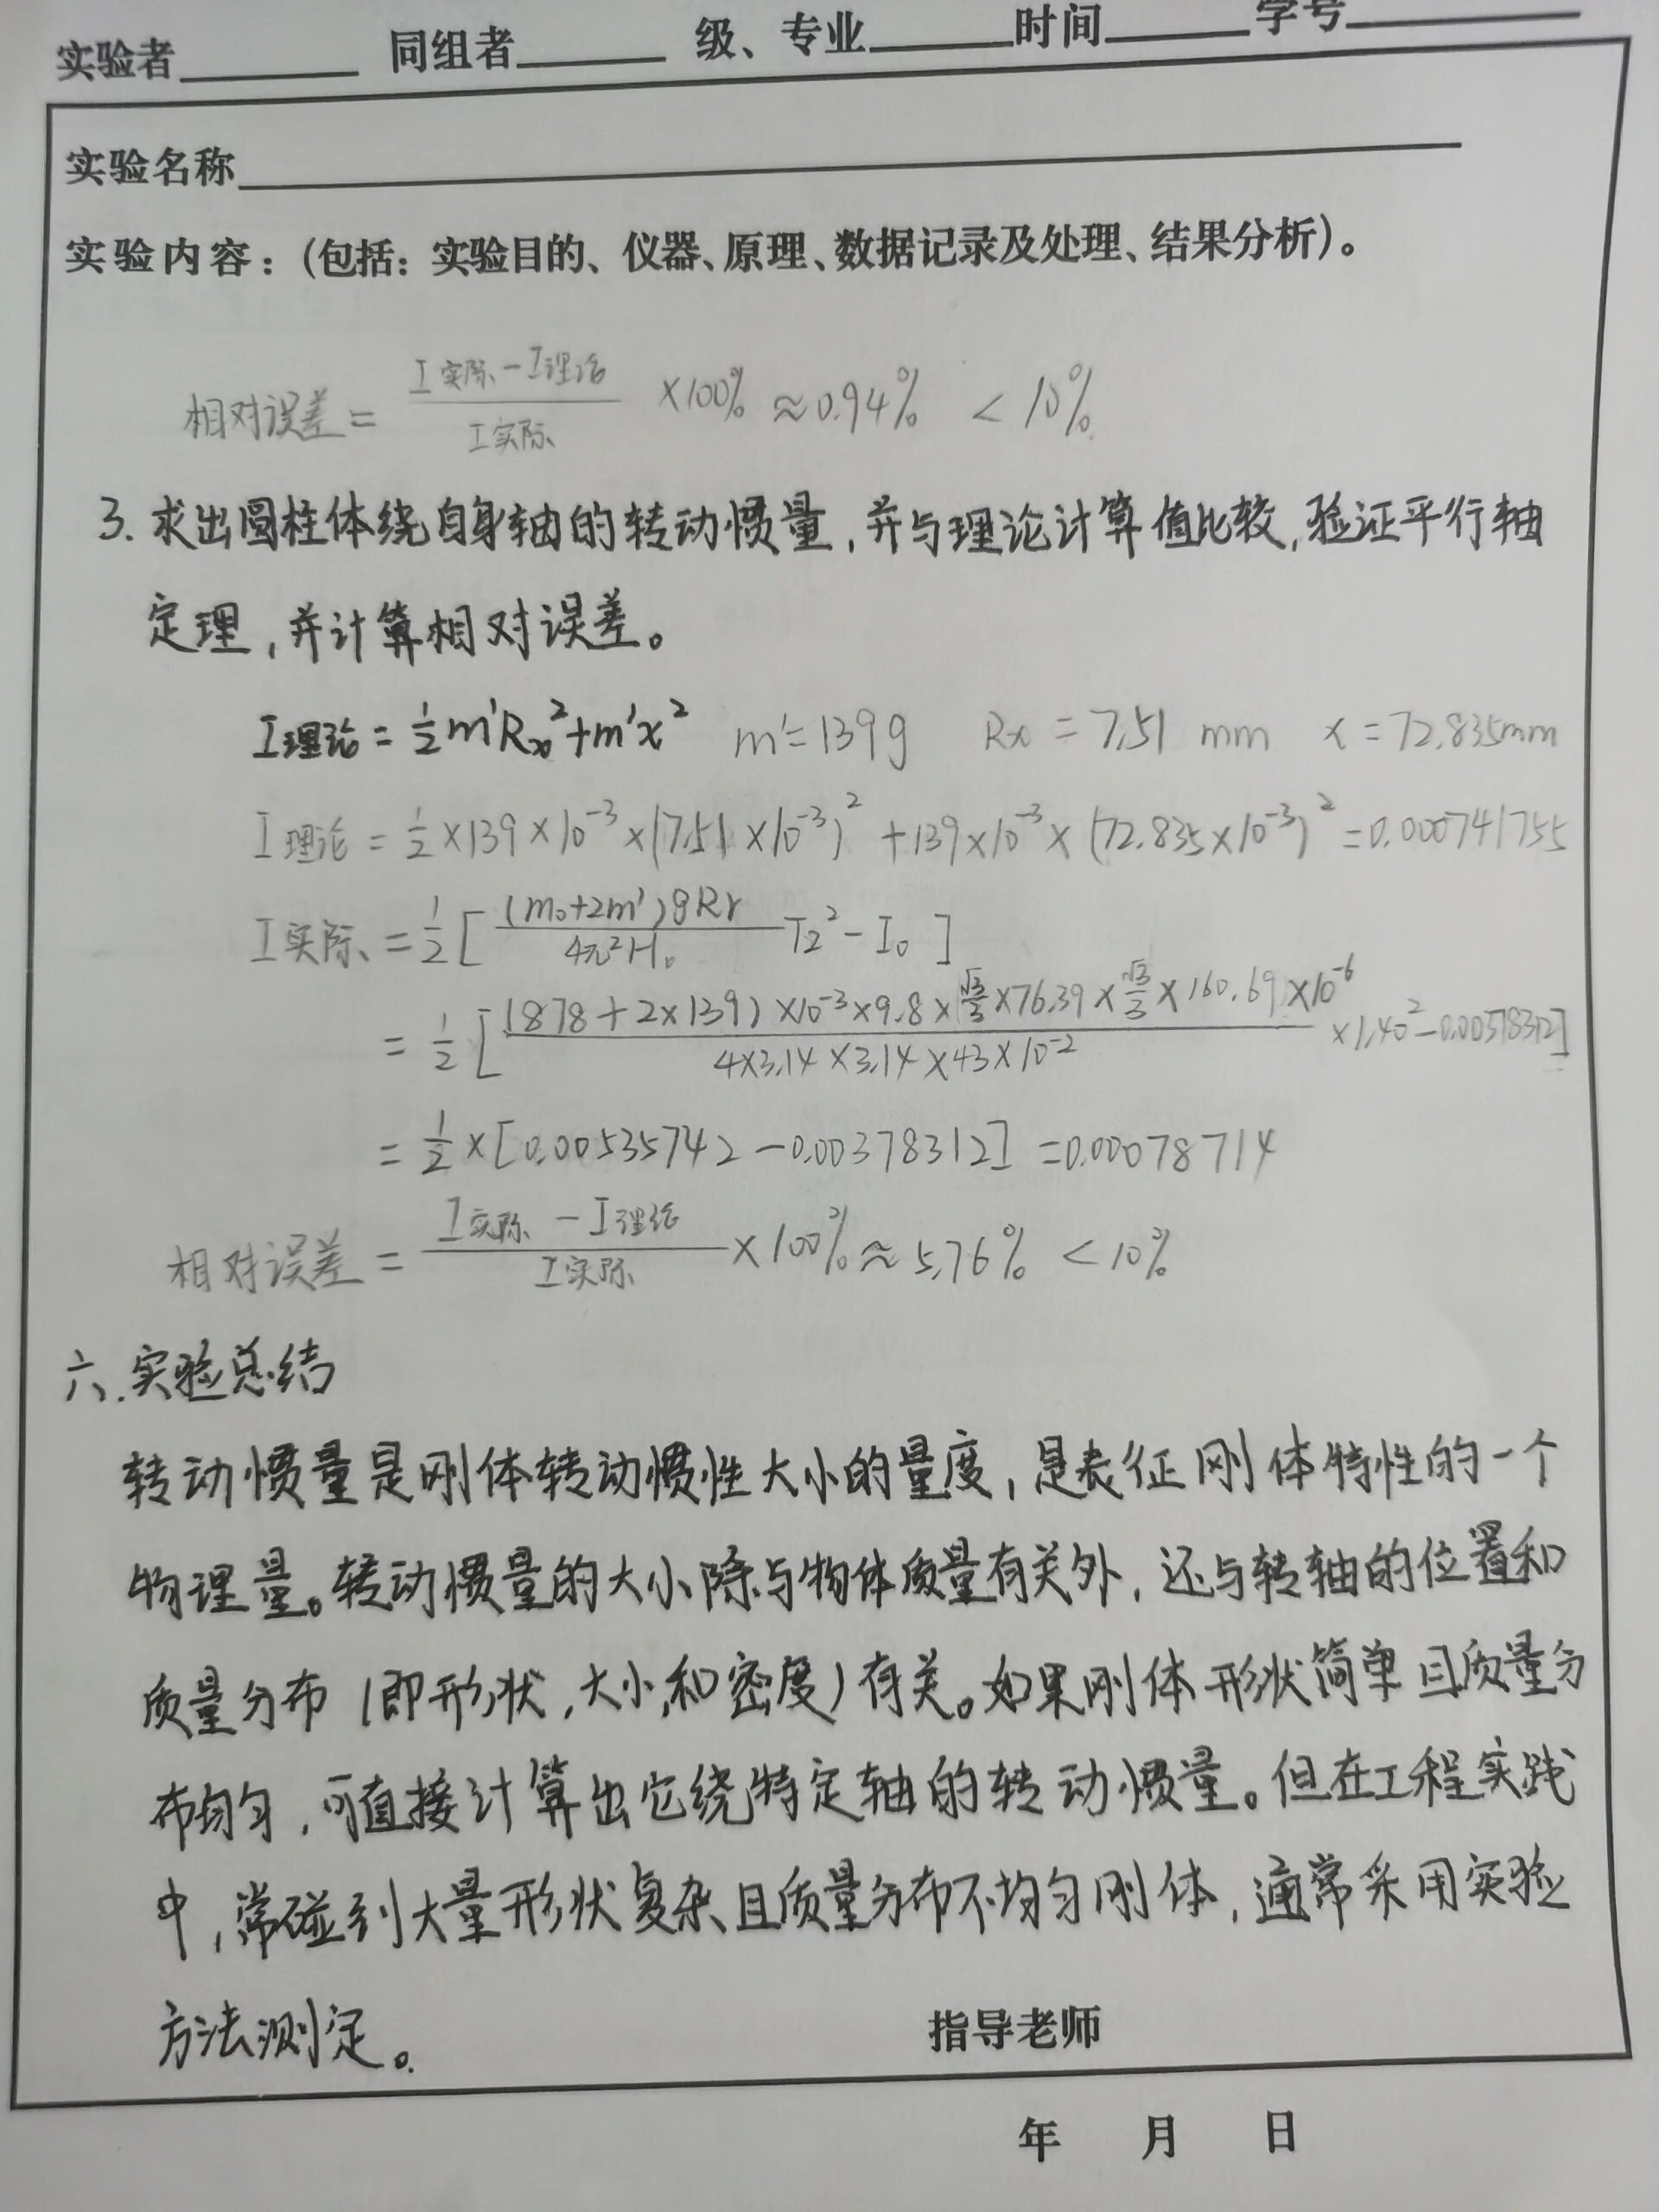 实验者______ 同组者______ 级、专业______时间______学号______
实验名称______
实验内容：(包括：实验目的、仪器、原理、数据记录及处理、结果分析)。
相对误差 = (I实际 - I理论)/I实际 ×100% ≈0.94% < 10%.
3. 求出圆柱体绕自身轴的转动惯量,并与理论计算值比较,验证平行轴
定理,并计算相对误差。
I理论 = ½m'Rx²+m'x² m'=139g Rx = 7.51 mm x = 72.835mm
I理论 = ½ ×139×10⁻³×(7.51×10⁻³)² + 139×10⁻³×(72.835×10⁻³)² = 0.000741755
I实际 = ½ [ (m₀+2m')gRr/4π²H₀ T₂² - I₀ ]
= ½ [ (878+2×139)×10⁻³×9.8×√3/3×76.39×√3/3×160.69×10⁻⁶/4×3.14×3.14×43×10⁻² ×1.40² - 0.00378312]
= ½ ×[0.00535742 - 0.00378312] = 0.00078714
相对误差 = (I实际 - I理论)/I实际 ×100% ≈ 5.76% < 10%
六.实验总结
转动惯量是刚体转动惯性大小的量度,是表征刚体特性的一个
物理量。转动惯量的大小除与物体质量有关外,还与转轴的位置和
质量分布(即形状,大小,和密度)有关。如果刚体形状简单且质量分
布均匀,可直接计算出它绕特定轴的转动惯量。但在工程实践
中,常碰到大量形状复杂且质量分布不均匀刚体,通常采用实验
方法测定。
指导老师
年 月 日